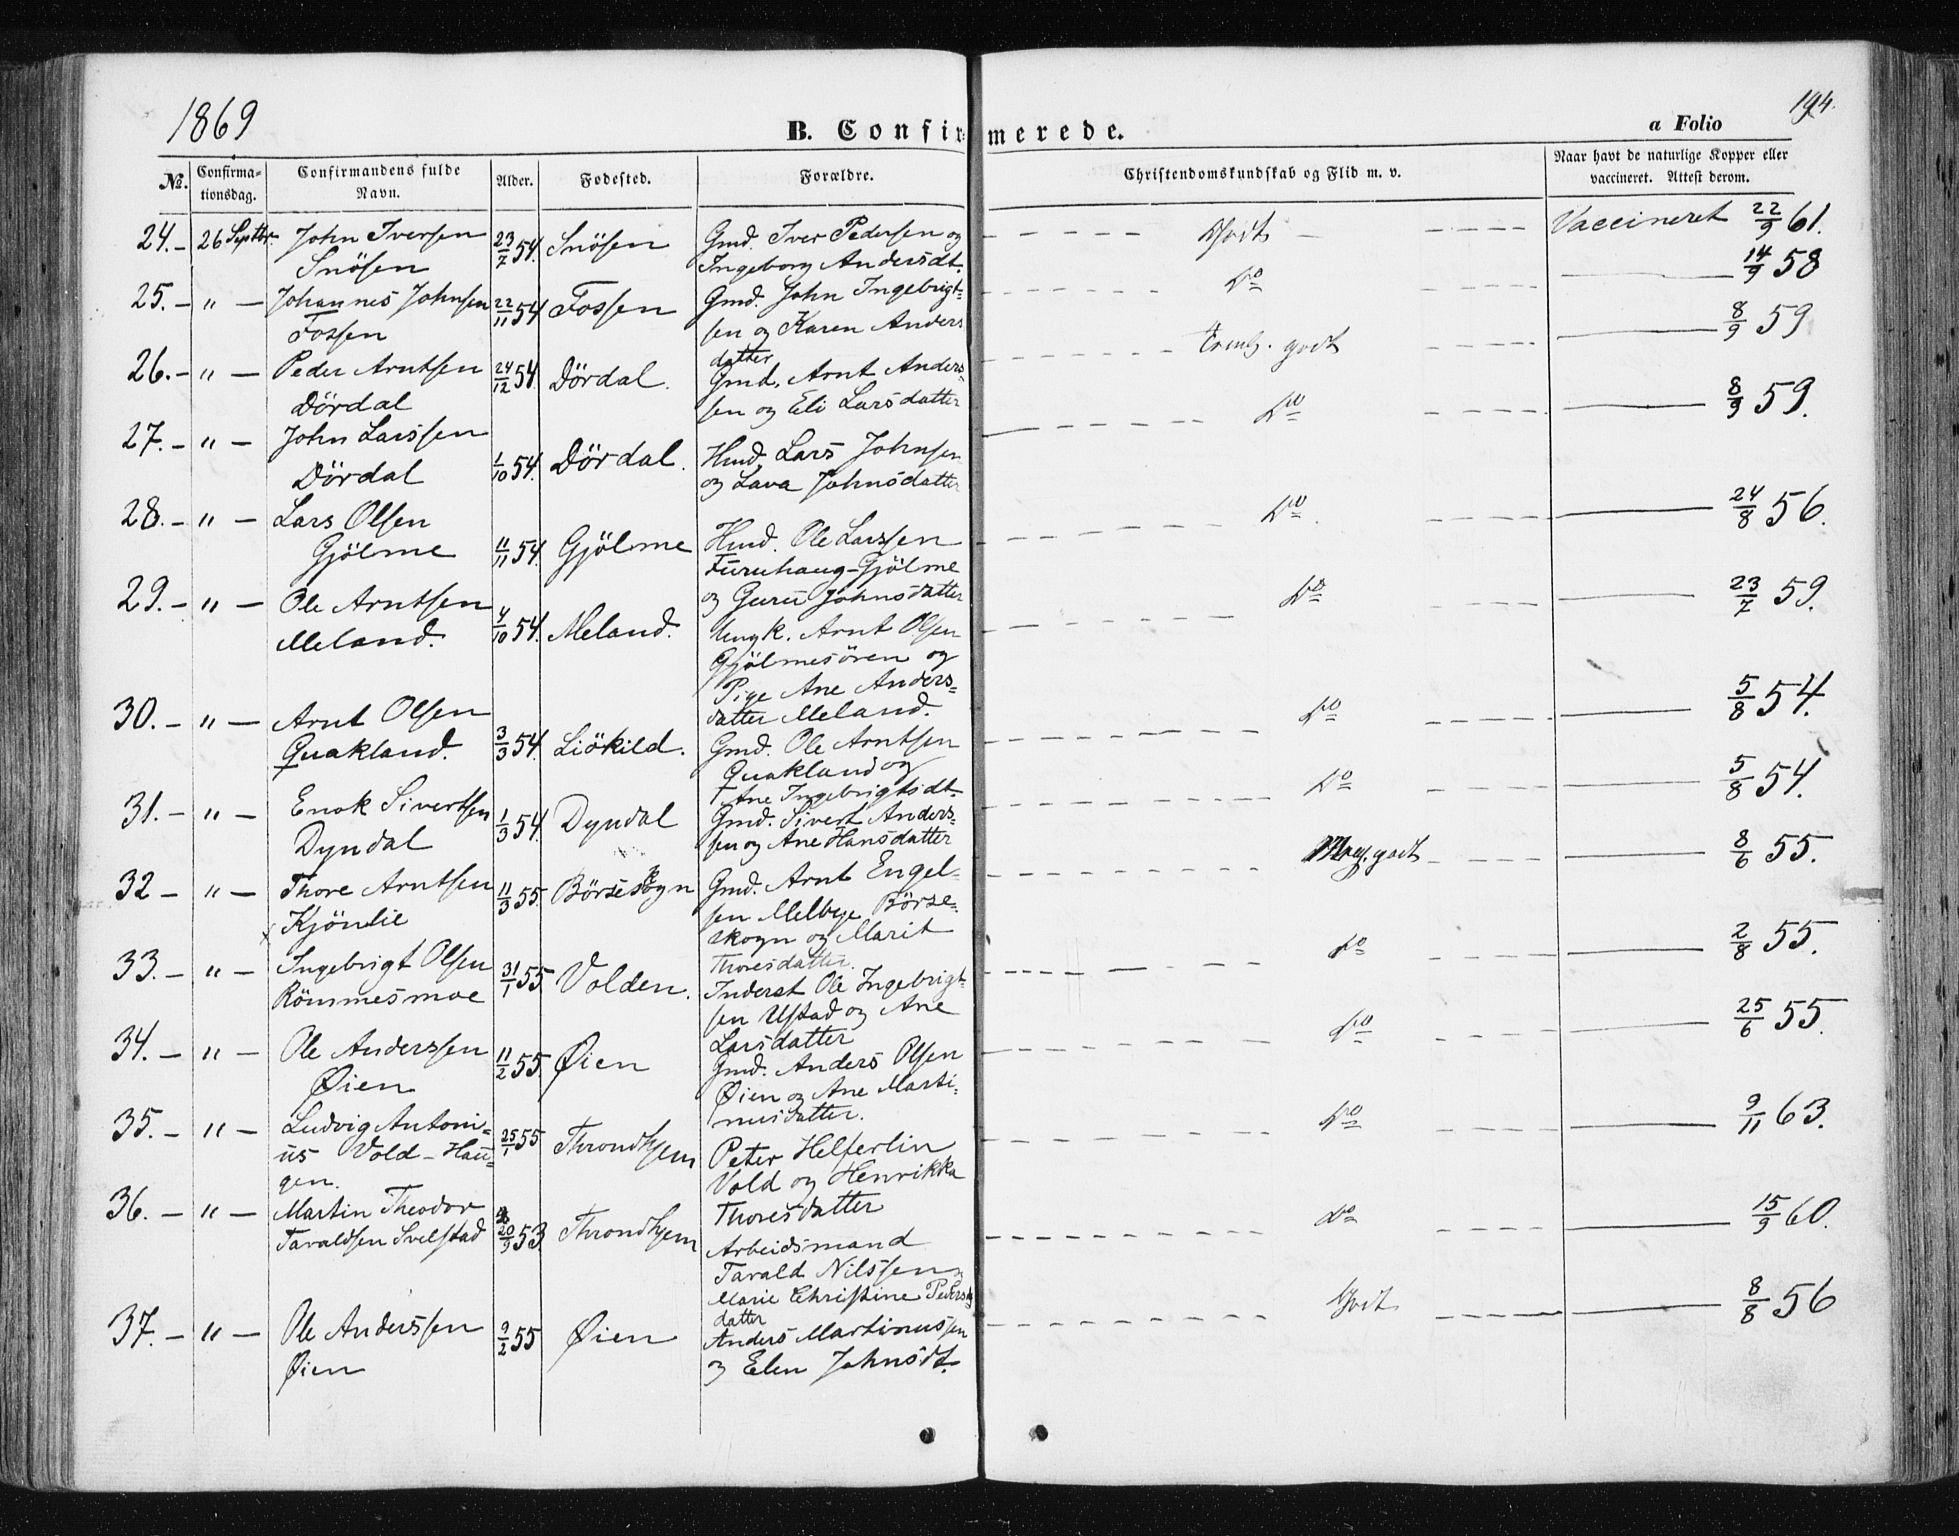 1869
B. Confirmerede.
a Folio
194.
No. Confirmationsdag. Confirmandens fulde Navn. Alder. Fødested. Forældre. Christendomskundskab og Flid m. v. Naar havt de naturlige Kopper eller vaccineret. Attest derom.
24. - 26 Septbr. John Iversen 23/7 54. Snösen Gmd. Iver Pedersen og Godt Vaccineret 22/9 61.
Snösen Ingeborg Andersdt.
25. - " - Johannes Johnsen 22/11 54 Fossen Gmd. John Ingebrigt- Do 14/9 58
Fossen sen og Karen Anders
datter
26. - " - Peder Arntsen 24/12 54. Dördal. Gmd. Arnt Anders- Temlg. godt 8/9 59
Dördal sen og Eli Larsdatter
27. - " - John Larssen 1/10 54. Dördal. Hmd. Lars Johnsen Do 8/9 59.
Dördal og Lava Johnsdatter
28. - " - Lars Olsen 11/11 54. Gjölme Hmd. Ole Larssen Do. 24/8 56.
Gjölme Furuhaug-Gjölme
og Guru Johnsdatter
29. - " - Ole Arntsen 4/10 54. Meland. Ungk. Arnt Olsen Do 23/7 59.
Meland. Gjölmesören og
Pige Ane Anders-
datter Meland.
30. - " - Arnt Olsen 3/3 54. Liökild. Gmd. Ole Arntsen Do 5/8 54.
Quakland. Quakland og
Ane Ingebrigtsdt.
31. - " - Enok Sivertsen 1/3 54. Dyndal Gmd. Sivert Anders- Do 5/8 54.
Dyndal sen og Ane Hansdatter
32 - " - Thore Arntsen 11/3 55. Börseskogn Gmd. Arnt Engel- Meg. godt 8/6 55.
Kjönlie sen Melbye Börse-
skogn og Marit
Thoresdatter.
33. - " - Ingebrigt Olsen 31/1 55 Volden. Inderst Ole Ingebrigt- Do 2/8 55.
Römmesmoe sen Ustad og Ane
Larsdatter
34. - " - Ole Anderssen 11/2 55. Øien Gmd. Anders Olsen Do 25/6 55.
Øien Øien og Ane Marti-
nusdatter.
35. - " - Ludvig Antoni- 25/1 55 Throndhjem Peter Helferlin Do 9/11 63.
us Vold - Hau- Vold og Henrikka
gen. Thoresdatter
36. - " - Martin Theodor 20/9 53. Throndhjem Arbeidsmand Do 15/9 60.
Taraldsen Svelstad Tarald Nilssen
Marie Christine Peders
datter
37. - " - Ole Anderssen 9/2 55 Øien Anders Martinussen Godt 8/8 56
Øien og Elen Johnsdt.